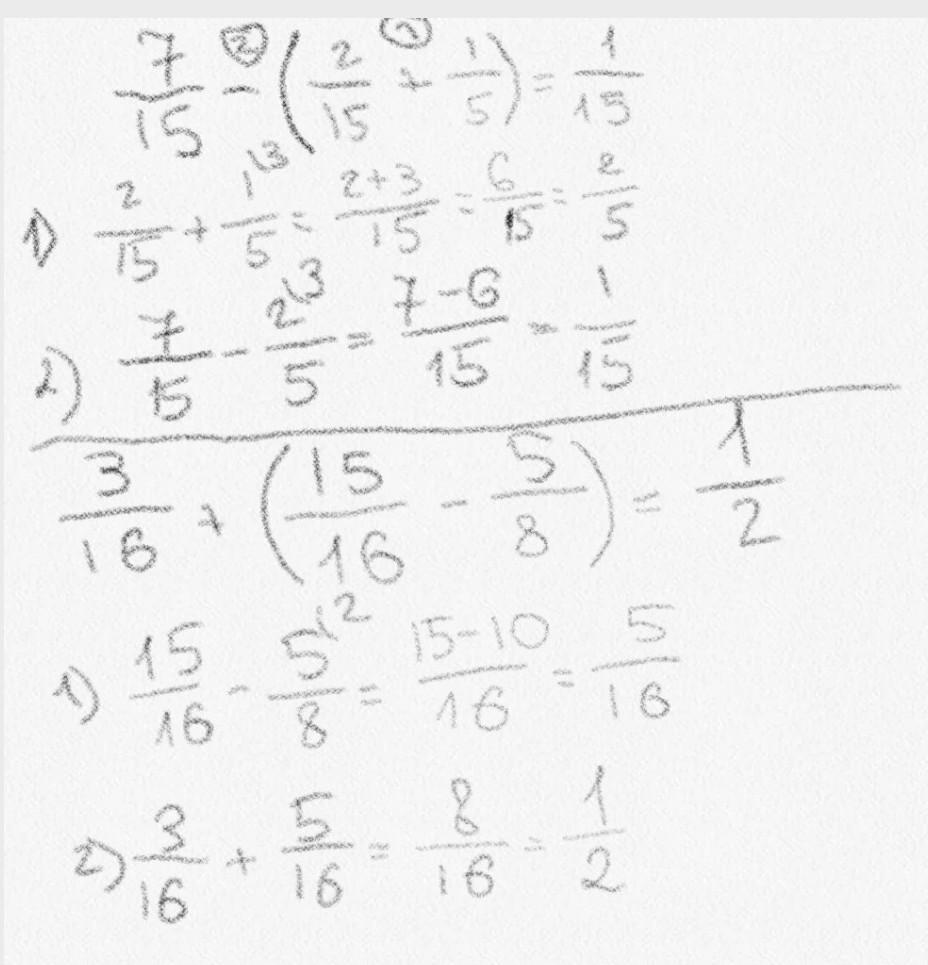 7/15 - (2/15 + 1/5) = 1/15
1) 2/15 + 1\3/5 = 2+3/15 = 6/15 = 2/5
2) 7/15 - 2\3/5 = 7-6/15 = 1/15
3/16 + (15/16 - 5/8) = 1/2
1) 15/16 - 5\2/8 = 15-10/16 = 5/16
2) 3/16 + 5/16 = 8/16 = 1/2